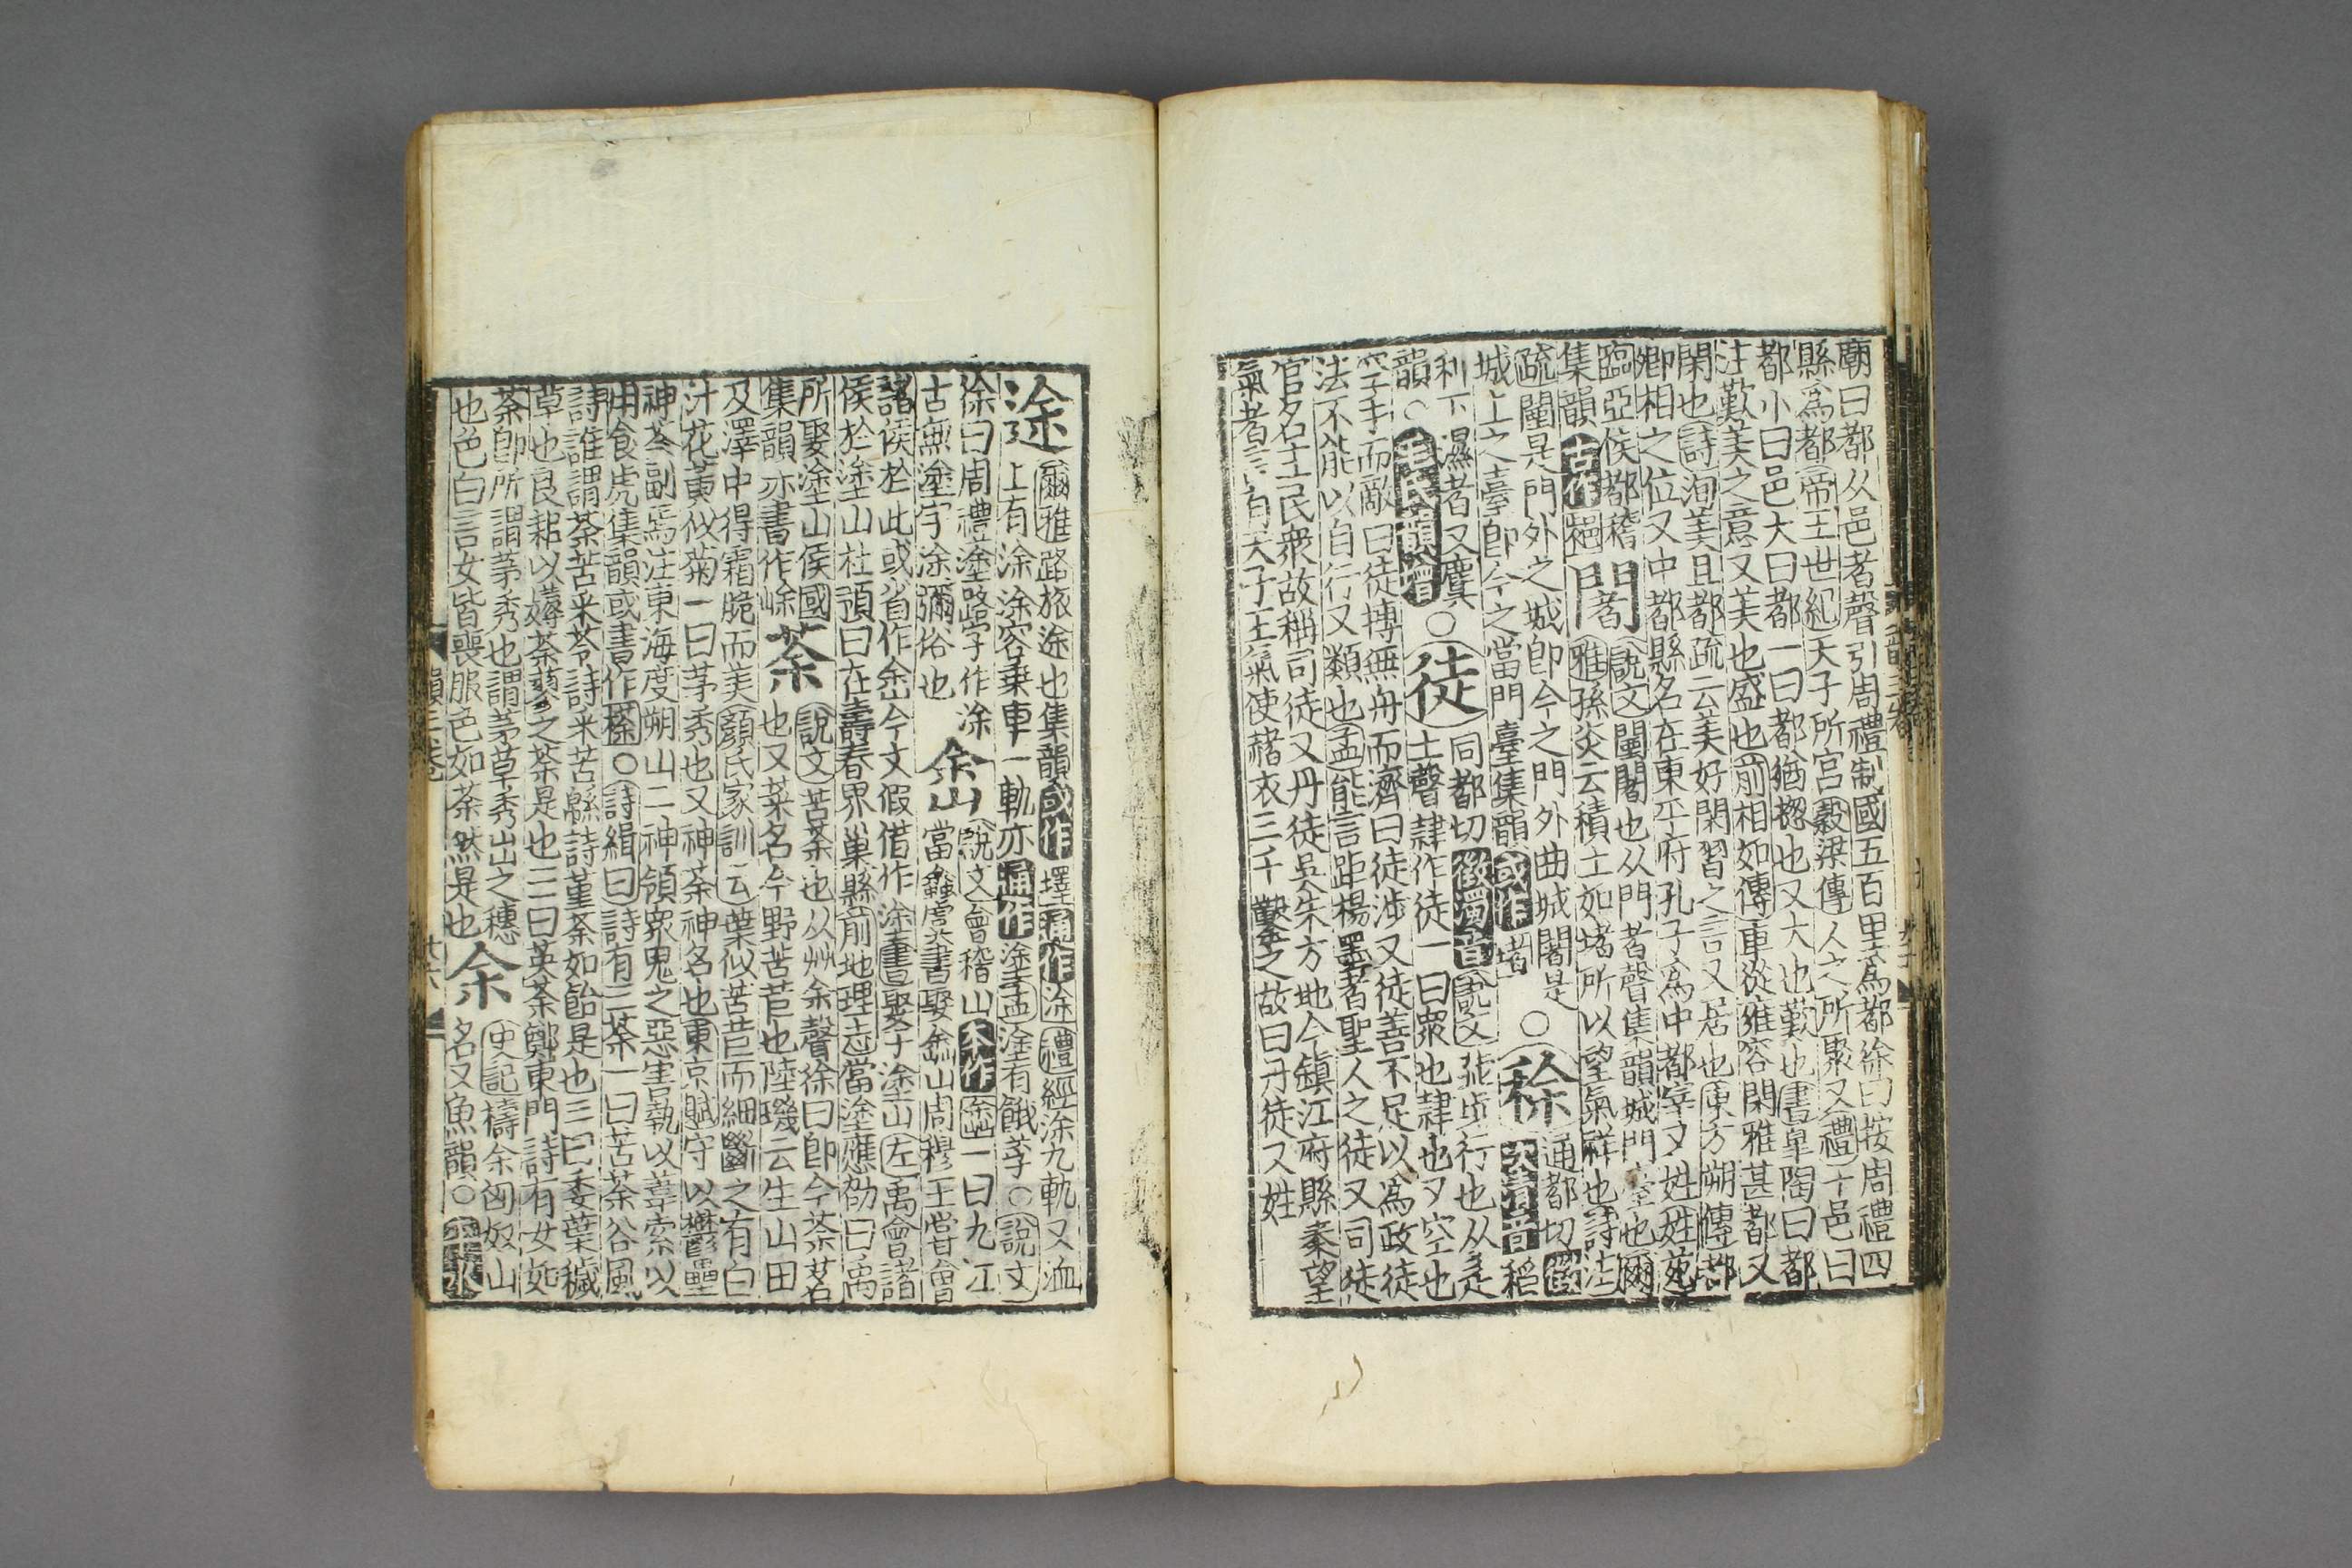 廟曰都从邑者聲引周禮制國五百里爲都徐曰按周禮四
縣爲都帝王世紀天子所宮穀梁傳人之所聚又禮十邑曰
都小曰邑大曰都一曰都猶揔也又大也歎也書皐陶曰都
注歎美之意又美也盛也前相如傳車從雍容閑雅甚都又
閑也詩洵美且都疏云美好閑習之言又居也東方朔傳都
卿相之位又中都縣名在東平府孔子爲中都宰又姓姓苑
臨亞侯都稽
集韻古作
闍
說文闉闍也从門者聲集韻城門臺也爾
雅孫炎云積土如堵所以望氣祥也詩注
疏闉是門外之城即今之門外曲城闍是
城上之臺即今之當門臺集韻或作堵
○稌
通都切徵
次清音稻
利下濕者又麌
韻○毛氏韻增
○徒
同都切徵濁音說文辵步行也从辵
土聲隸作徒一曰衆也隸也又空也
空手而敵曰徒搏無舟而濟曰徒涉又徒善不足以爲政徒
法不能以自行又類也孟能言距楊墨者聖人之徒又司徒
官名主民衆故稱司徒又丹徒吳朱方地今鎮江府縣秦望
氣者言有天子王氣使赭衣三千鑿之故曰丹徒又姓
途
爾雅路旅途也集韻或作墿通作涂禮經涂九軌又洫
上有涂涂容乗車一軌亦通作塗孟塗有餓莩○說文
徐曰周禮塗路字作涂
古無塗字涂彌俗也
嵞
說文會稽山本作嵞一曰九江
當嵞虞書娶嵞山周穆王嘗會
諸侯於此或省作峹今文假借作塗書娶于塗山左禹會諸
侯於塗山杜預曰在壽春界巢縣前地理志當塗應劭曰禹
所娶塗山侯國
集韻亦書作峹
荼
說文苦荼也从艸余聲徐曰即今茶茗
也又菜名今野苦苣也陸璣云生山田
及澤中得霜脆而美顏氏家訓云葉似苦苣而細斷之有白
汁花黄似菊一曰茅秀也又神荼神名也東京賦守以鬱壘
神荼副焉注東海度朔山二神領衆鬼之惡害執以葦索以
用食虎集韻或書作𣘻○詩緝曰詩有三荼一曰苦荼谷風
詩誰謂荼苦采苓詩采苦緜詩堇荼如飴是也二曰委葉穢
草也良耜以薅荼蓼之荼是也三曰英荼鄭東門詩有女如
荼即所謂茅秀也謂茅草秀出之穗
也色白言女皆喪服色如荼然是也
余
史記檮余匈奴山
名又魚韻○
韻三卷
廿六